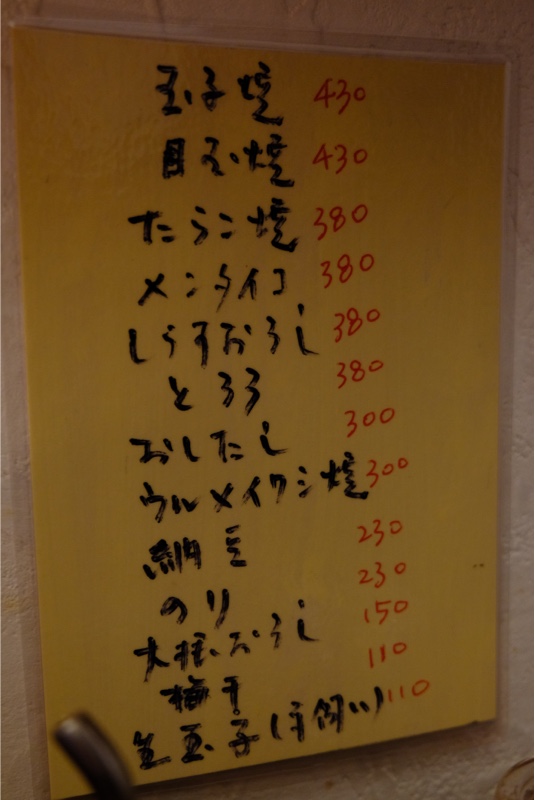 玉子焼 430
目玉焼 430
たらこ焼 380
メンタイコ 380
しらすおろし 380
とろろ 380
おしたし 300
ウルメイワシ焼 300
納豆 230
のり 230
大根おろし 150
梅干 110
生玉子(平飼い) 110